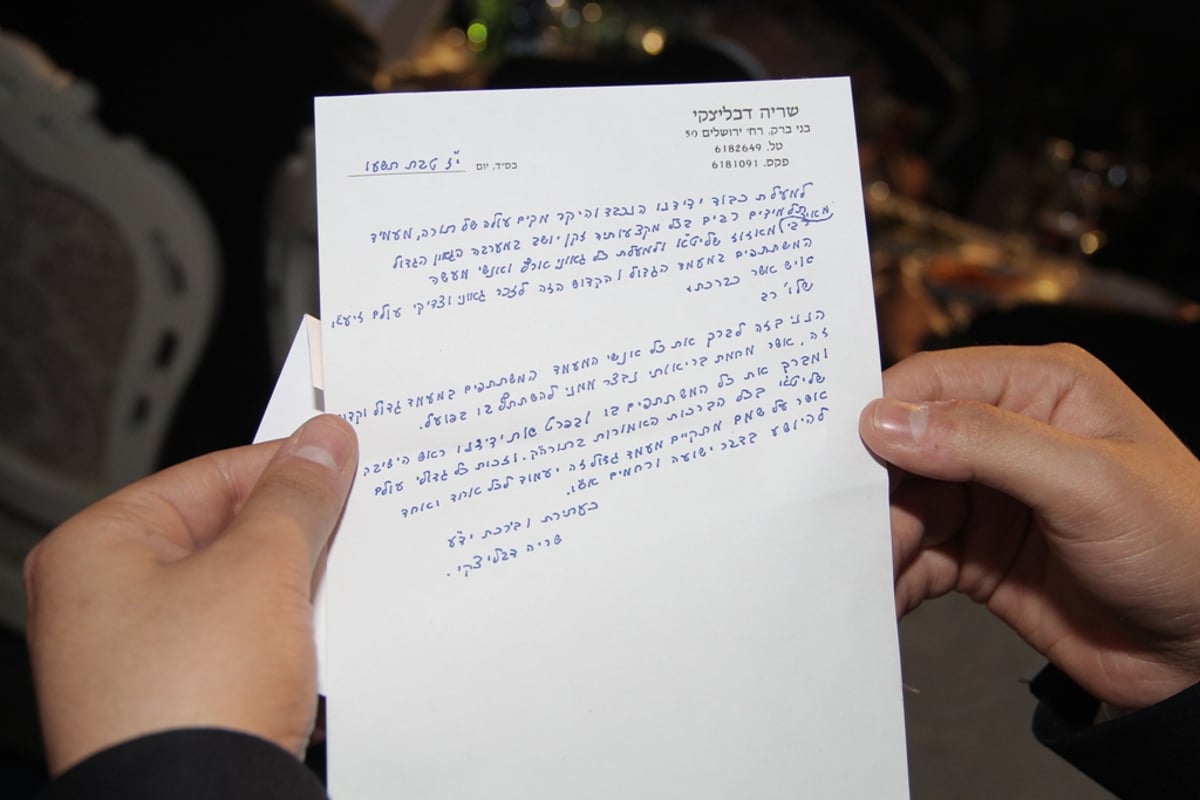 שריה דבליצקי
בני ברק, רח׳ ירושלים 50
טל. 6182649
פקס. 6181091
בס״ד, יום י״ז טבת תשעו
למעלת כבוד ידידנו הנכבד והיקר מקים עולה של תורה, מעמיד
תלמידים רבים בכל מקצועותיה זקן יושב במערבה הגאון הגדול
רבי מאיר מאזוז שליט״א ולמעלת כל גאוני ארץ ואנשי מעשה
המשתתפים במעמד הגדול והקדוש הזה לזכר גאוני וצדיקי עולם זיע״א
איש אשר כברכתו
שלו׳ רב
הנני בזה לברך את כל אנשי המעמד המשתתפים במעמד גדול וקדוש
זה, אשר מחמת בריאותי נבצר ממני להשתתף בו בפועל.
ומברך את כל המשתתפים בו ובפרט את ידידנו ראש הישיבה
שליט״א בכל הברכות האמורות בתוה״ק. וזכות כל גדולי עולם
אשר על שמם מתקיים מעמד גדול זה יעמוד לכל אחד ואחד
להיושע בדבר ישועה ורחמים אכי״ר.
בעתירת וברכת ידי״ע
שריה דבליצקי.